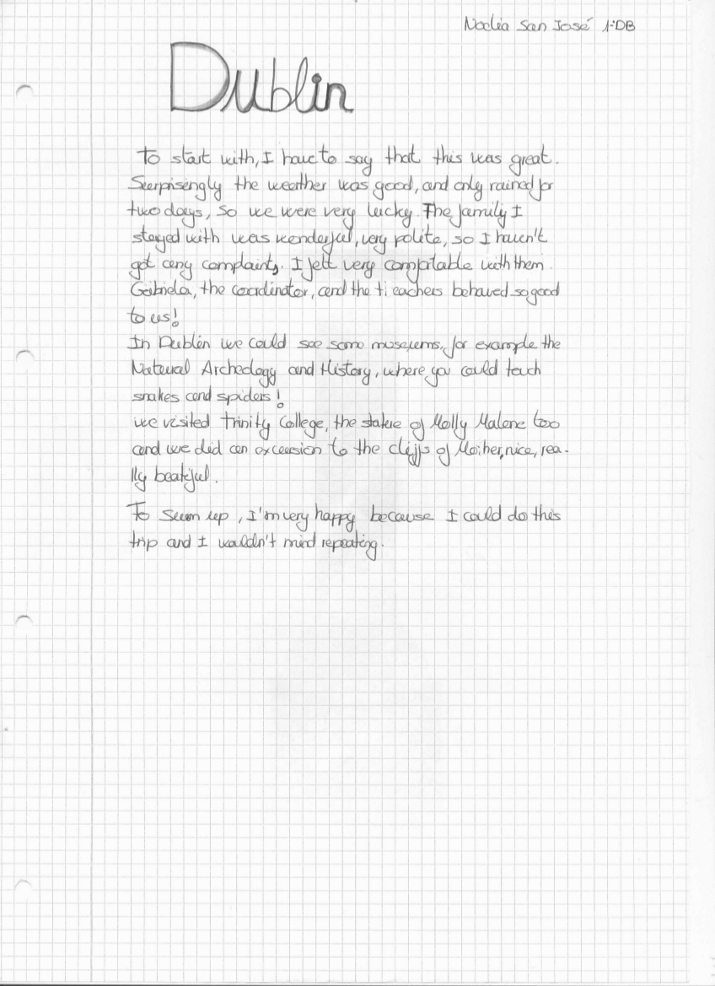 Noelia San José 1ºDB
Dublin
To start with, I have to say that this was great.
Surprisengly the weather was good, and only rained for
two days, so we were very lucky. The family I
stayed with was wonderful, very polite, so I haven't
got any complaints. I felt very comfortable with them.
Gabriela, the coordinator, and the teachers behaved so good
to us!
In Dublin we could see some museums, for example the
Natural Archeology and History, where you could touch
snakes and spiders!
we visited Trinity College, the statue of Molly Malone too
and we did an excursion to the cliffs of Moiher, nice, rea-
lly beatiful.
To summ up, I'm very happy because I could do this
trip and I wouldn't mind repeating.